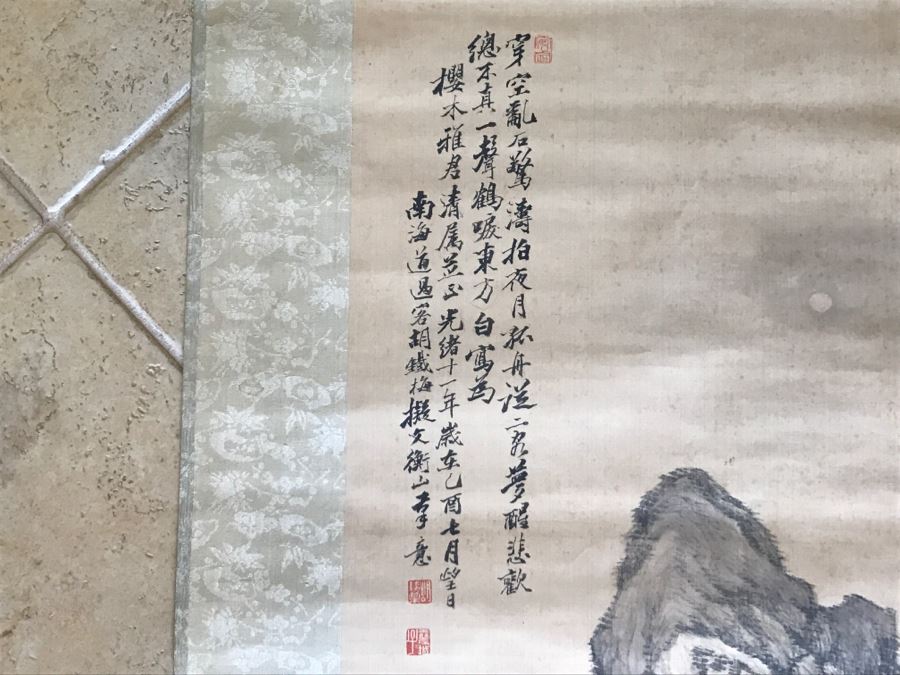 穿空亂石驚濤拍夜月孤舟從二客夢醒悲歡
總不真一聲鶴唳東方白寫為
櫻木雅君清属並正光緒十一年歲在乙酉七月望日
南海道過客胡鐵梅擬文衡山筆意